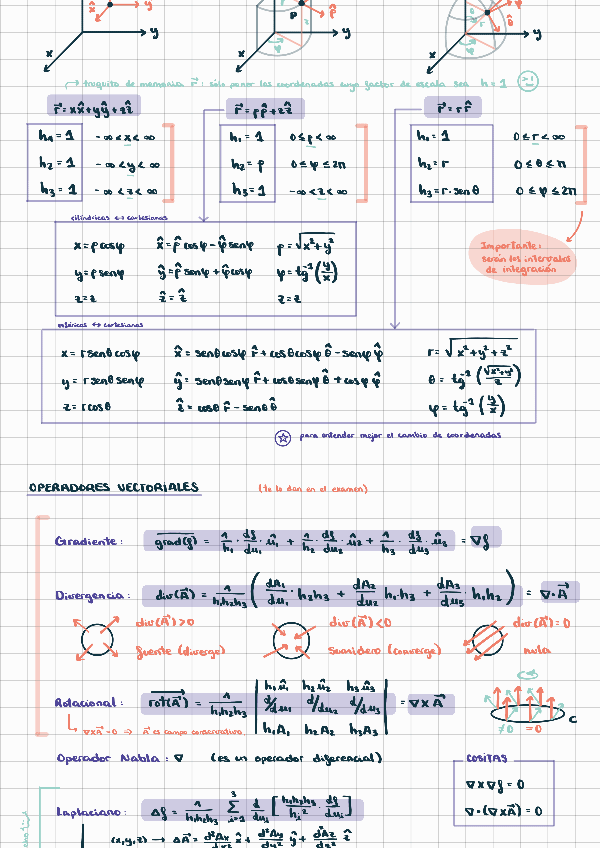 x̂ y x y
p ρ̂ φ y x
θ̂ φ y x
→ truquito de memoria r⃗: solo poner las coordenadas cuyo factor de escala sea h=1
r⃗ = xx̂+yŷ+zẑ
h₁=1 -∞<x<∞
h₂=1 -∞<y<∞
h₃=1 -∞<z<∞
r⃗ = ρρ̂+zẑ
h₁=1 0≤ρ<∞
h₂=ρ 0≤φ≤2π
h₃=1 -∞<z<∞
r⃗ = rr̂
h₁=1 0≤r<∞
h₂=r 0≤θ≤π
h₃=r·senθ 0≤φ≤2π
Importante:
serán los intervalos
de integración
cilíndricas ↔ cartesianas
x=ρcosφ x̂=ρ̂cosφ-φ̂senφ ρ=√x²+y²
y=ρsenφ ŷ=ρ̂senφ+φ̂cosφ φ=tg⁻¹(y/x)
z=z ẑ=ẑ z=z
esféricas ↔ cartesianas
x=rsenθcosφ x̂=senθcosφ r̂+cosθcosφ θ̂-senφ φ̂ r=√x²+y²+z²
y=rsenθsenφ ŷ=senθsenφ r̂+cosθsenθ θ̂+cosφ φ̂ θ=tg⁻¹(√x²+y²/z)
z=rcosθ ẑ=cosθ r̂-senθ θ̂ φ=tg⁻¹(y/x)
☆ para entender mejor el cambio de coordenadas
OPERADORES VECTORIALES (te lo dan en el examen)
Gradiente: grad(f) = 1/h₁·df/du₁·û₁ + 1/h₂·df/du₂·û₂ + 1/h₃·df/du₃·û₃ = ∇f
Divergencia: div(A⃗) = 1/h₁h₂h₃ (dA₁/du₁·h₂h₃ + dA₂/du₂·h₁·h₃ + dA₃/du₃·h₁h₂) = ∇·A⃗
div(A⃗)>0 div(A⃗)<0 div(A⃗)=0
fuente (diverge) sumidero (converge) nula
Rotacional: rot(A⃗) = 1/h₁h₂h₃ | h₁û₁ h₂û₂ h₃û₃ | = ∇×A⃗
d/du₁ d/du₂ d/du₃
h₁A₁ h₂A₂ h₃A₃
∇×A⃗=0 ⇒ A⃗ es campo conservativo
≠0 =0 C
Operador Nabla: ∇ (es un operador diferencial)
COSITAS
∇×∇f=0
∇·(∇×A⃗)=0
Laplaciano: Δf = 1/h₁h₂h₃ ∑³ᵢ₌₁ d/duᵢ [h₁h₂h₃/hᵢ²·df/duᵢ]
(x,y,z) → ΔA⃗ = d²Ax x̂ + d²Ay ŷ + d²Az ẑ